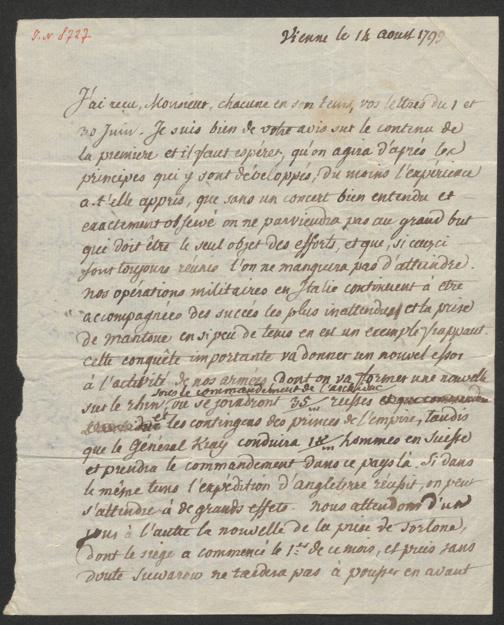 I.N 8727
Vienne le 14 aoust 1799
J'ai reçu, Monsieur, chacune en son tems, vos lettres du 1 et
30 Juin. Je suis bien de votre avis sur le contenu de
la premiere et il faut espérer, qu'on agira d'après les
principes qui y sont développés, du moins l'expérience
a-t'elle appris, que sans un concert bien entendu et
exactement observé on ne parviendra pas au grand but
qui doit être le seul objet des efforts, et que, si ceux ci
sont toujours réunis l'on ne manquera pas d'atteindre.
nos opérations militaires en Italie continuent à être
accompagnées des succès les plus inattendus et la prise
de mantoue en si peu de tems en est un exemple frappant.
cette conquête importante va donner un nouvel essor
à l'activité de nos armées dont on va former une nouvelle
sous le commandement de l'archiduc
sur le rhin, où se joindront 35/m russes et que commandera
et les contingens des princes de l'empire, tandis
que le Général Kray conduira 18/m hommes en Suisse
et prendra le commandement dans ce pays là. Si dans
le même tems l'expédition d'Angleterre réussit, on peut
s'attendre à de grands effets. nous attendons d'un
jour à l'autre la nouvelle de la prise de Tortone,
dont le siège a commencé le 1.er de ce mois, et puis sans
doute Suwarow ne tardera pas à pousser en avant